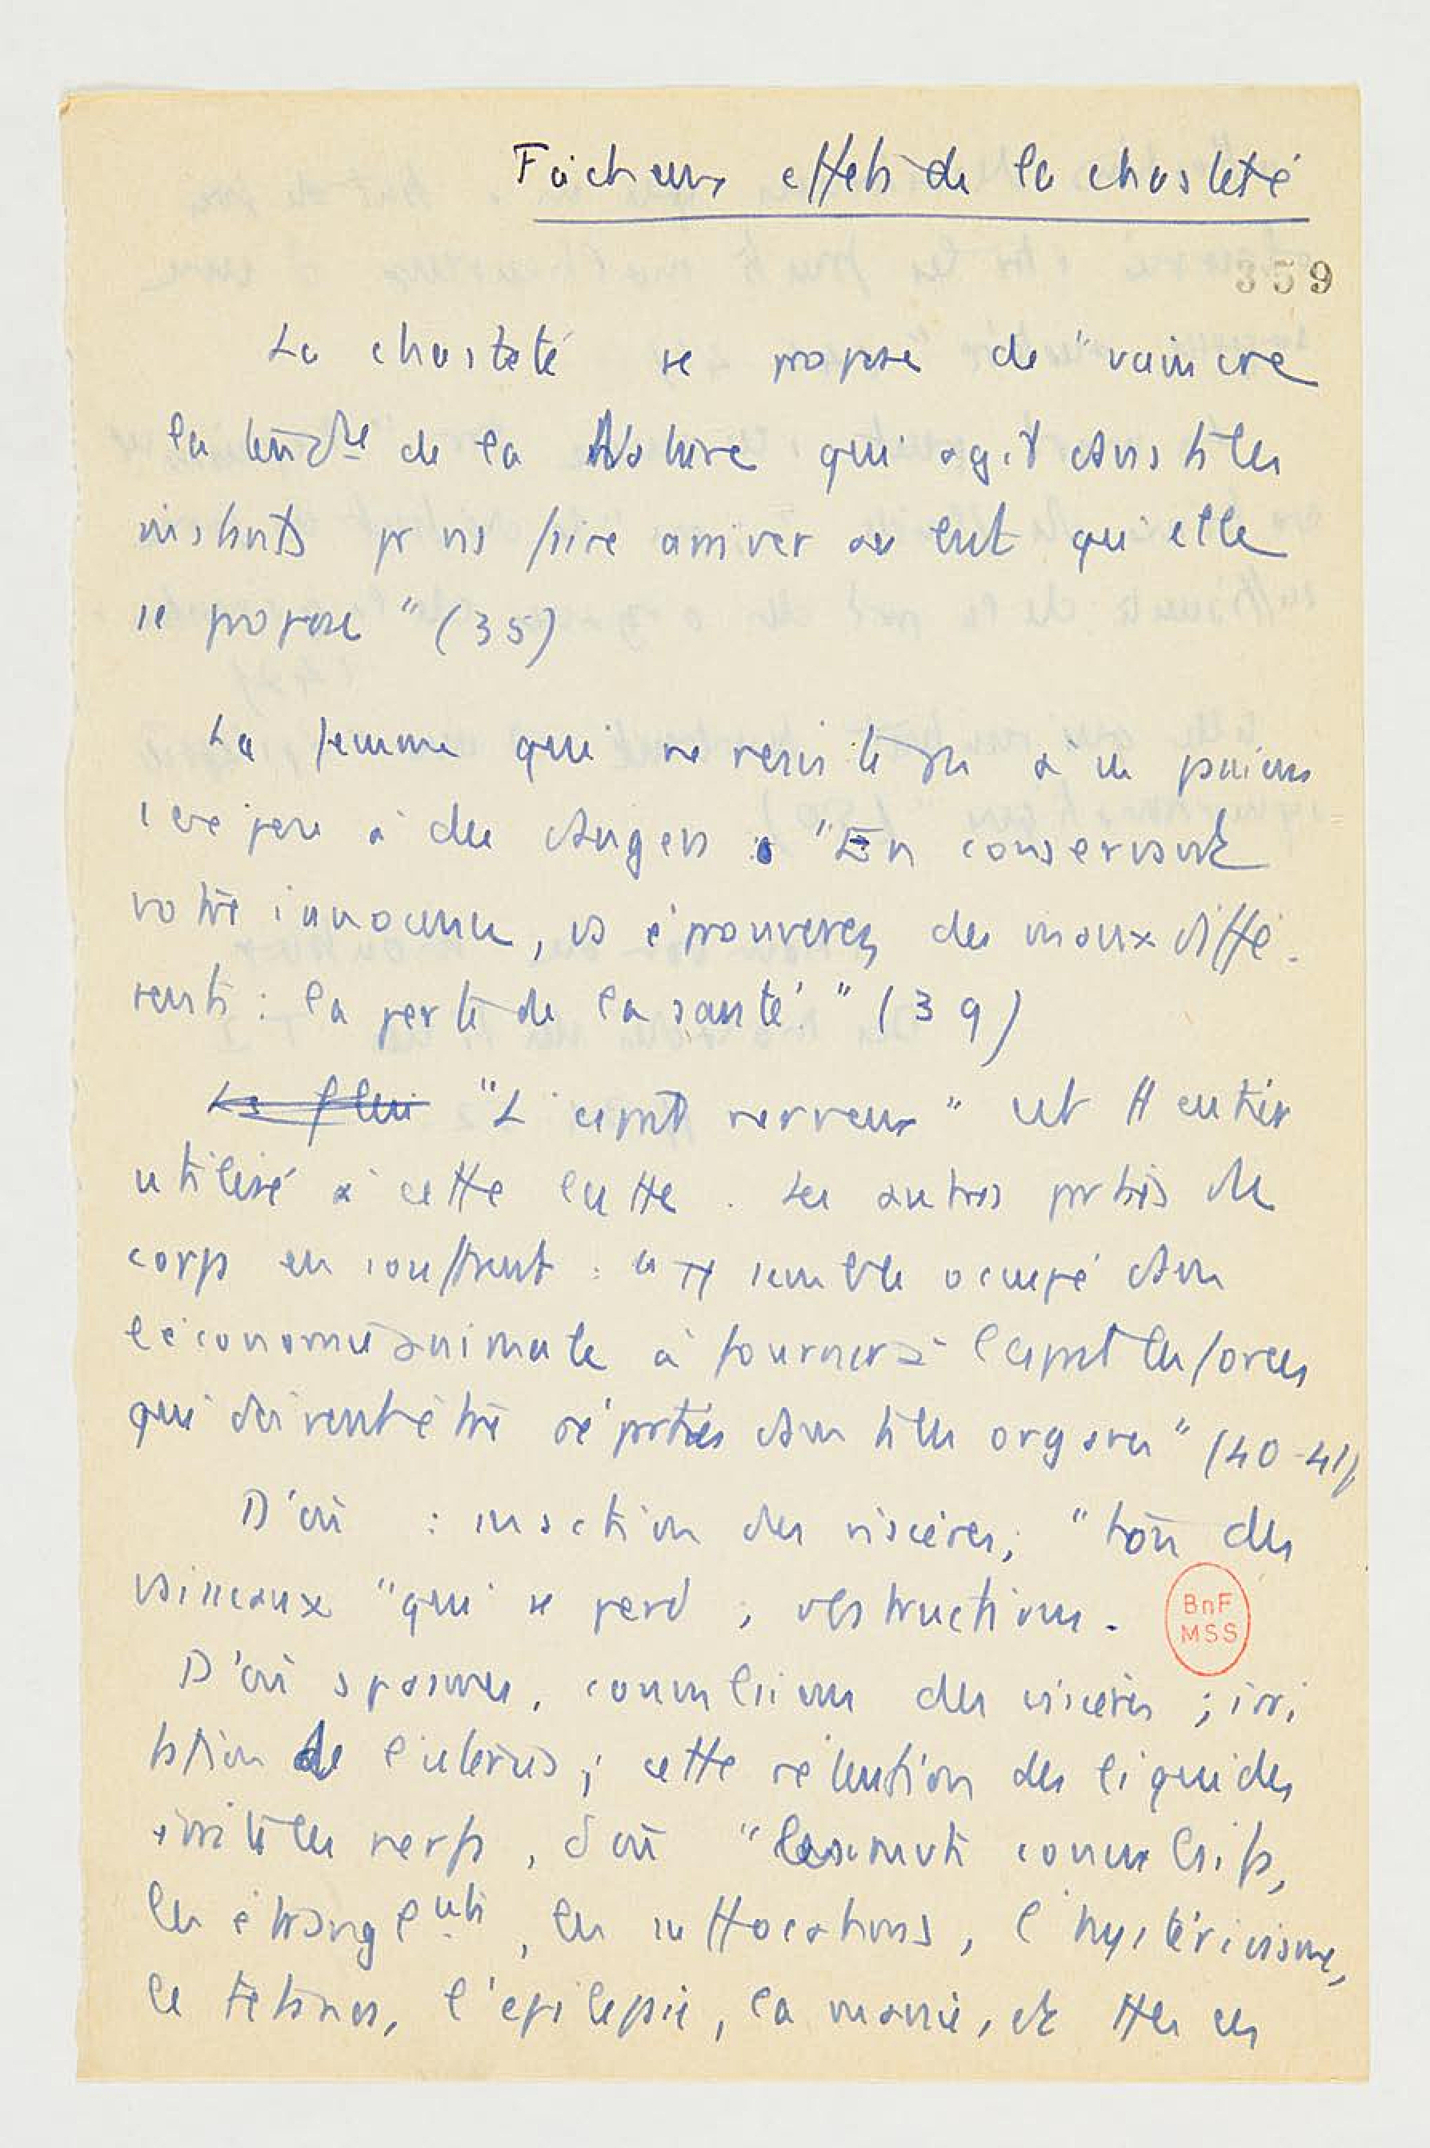 Fâcheux effets de la chasteté
359
La chasteté se propose de "vaincre
la tendce de la Nature qui agit dans ts les
instants pr ns faire arriver au but qu'elle
se propose" (35)
La femme qui ne résiste pas à la
s'expose à des dangers "En conservant
votre innocence, vs éprouverez des maux diffé-
rents : la perte de la santé." (39)
"L'esprit nerveux" est tt entier
utilisé à cette lutte. Les autres parties du
corps en souffrent : "Tt semble occupé dans
l'économie animale à fournir à l'esprit les forces
qui doivent être réparties dans ts les organes" (40-41)
D'où : inaction des viscères; "ton des
vaisseaux" qui se perd, obstructions.
BnF
MSS
D'où spasmes, convulsions des viscères ; irri
tation de l'utérus; cette rétention des liquides
irrite les nerfs, d'où "les mvts convulsifs,
les étranglemts, les suffocations, l'hystéricisme,
le tetanos, l'épilepsie, la manie, et ttes les